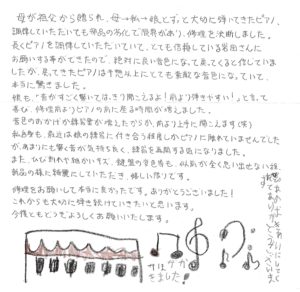 母が祖父から贈られ、母→私→娘と、ずっと大切に弾いてきたピアノ。
調律していただいても部品の劣化で限界があり、修理を決断しました。
長くピアノを調律していただいていて、とても信頼している
お願いする事ができたので、絶対に良い音色になって戻ってくると信じていま
したが、戻ってきたピアノは予想以上にとても素敵な音色になっていて、
本当に驚きました。
娘も、「音がすごく響いて、はっきり聞こえる！前より弾きやすい！」と言って
喜び、修理前よりピアノの前に座る時間が増えました。
音色のおかげか練習量が増えたからか、前より上手に聞こえます（笑）
私自身も、最近は娘の練習に付き合う程度しかピアノに触れていませんでした
が、あまりにも響く音が気持ち良く、練習を再開する気になりました。
また、ひび割れや細かいキズ、鍵盤の変色等も、以前が全く思い出せない位、
新品の様に綺麗にしていただき、嬉しい限りです。
修理をお願いして本当に良かったです。ありがとうございました！
これからも大切に弾き続けていきたいと思います。
今後ともどうぞよろしくお願いいたします。
ピアノをきれいにしてく
ださって
ありがとうございます。